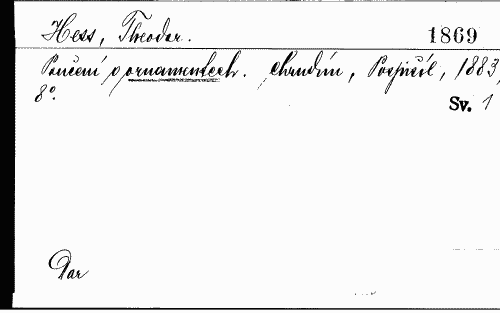 Hess, Theodor.
1869
Poučení o ornamentech. Chrudim, Pospíšil, 1883,
8°.
Sv. 1
Dar